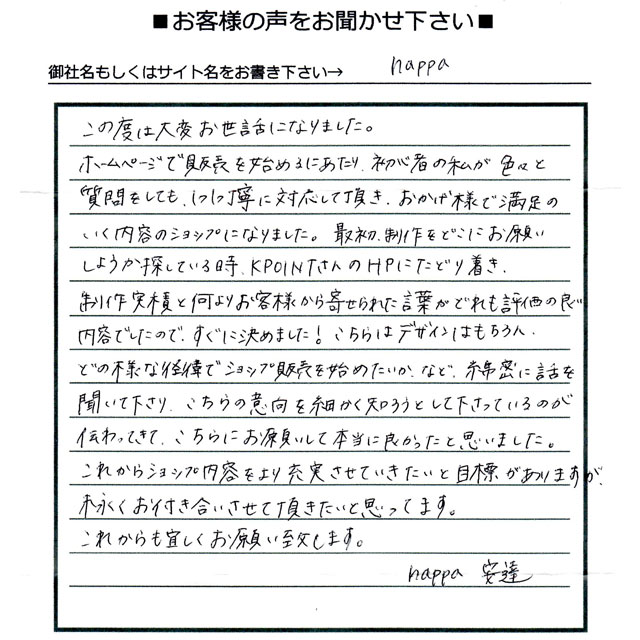 ■お客様の声をお聞かせ下さい■
御社名もしくはサイト名をお書き下さい→ nappa
この度は大変お世話になりました。
ホームページで販売を始めるにあたり、初心者の私が色々と
質問をしても、1つ1つ丁寧に対応して頂き、おかげ様で満足の
いく内容のショップになりました。最初、制作をどこにお願い
しようか探している時、KPOINTさんのHPにたどり着き、
制作実積と何よりお客様から寄せられた言葉がどれも評価の良い
内容でしたので、すぐに決めました！こちらはデザインはもちろん、
どの様な経緯でショップ販売を始めたいか、など、綿密に話を
聞いて下さり、こちらの意向を細かく知ろうとして下さっているのが
伝わってきて、こちらにお願いして本当に良かったと思いました。
これからショップ内容をより充実させていきたいと目標がありますが、
末永くお付き合いさせて頂きたいと思ってます。
これからも宜しくお願い致します。
nappa 安達